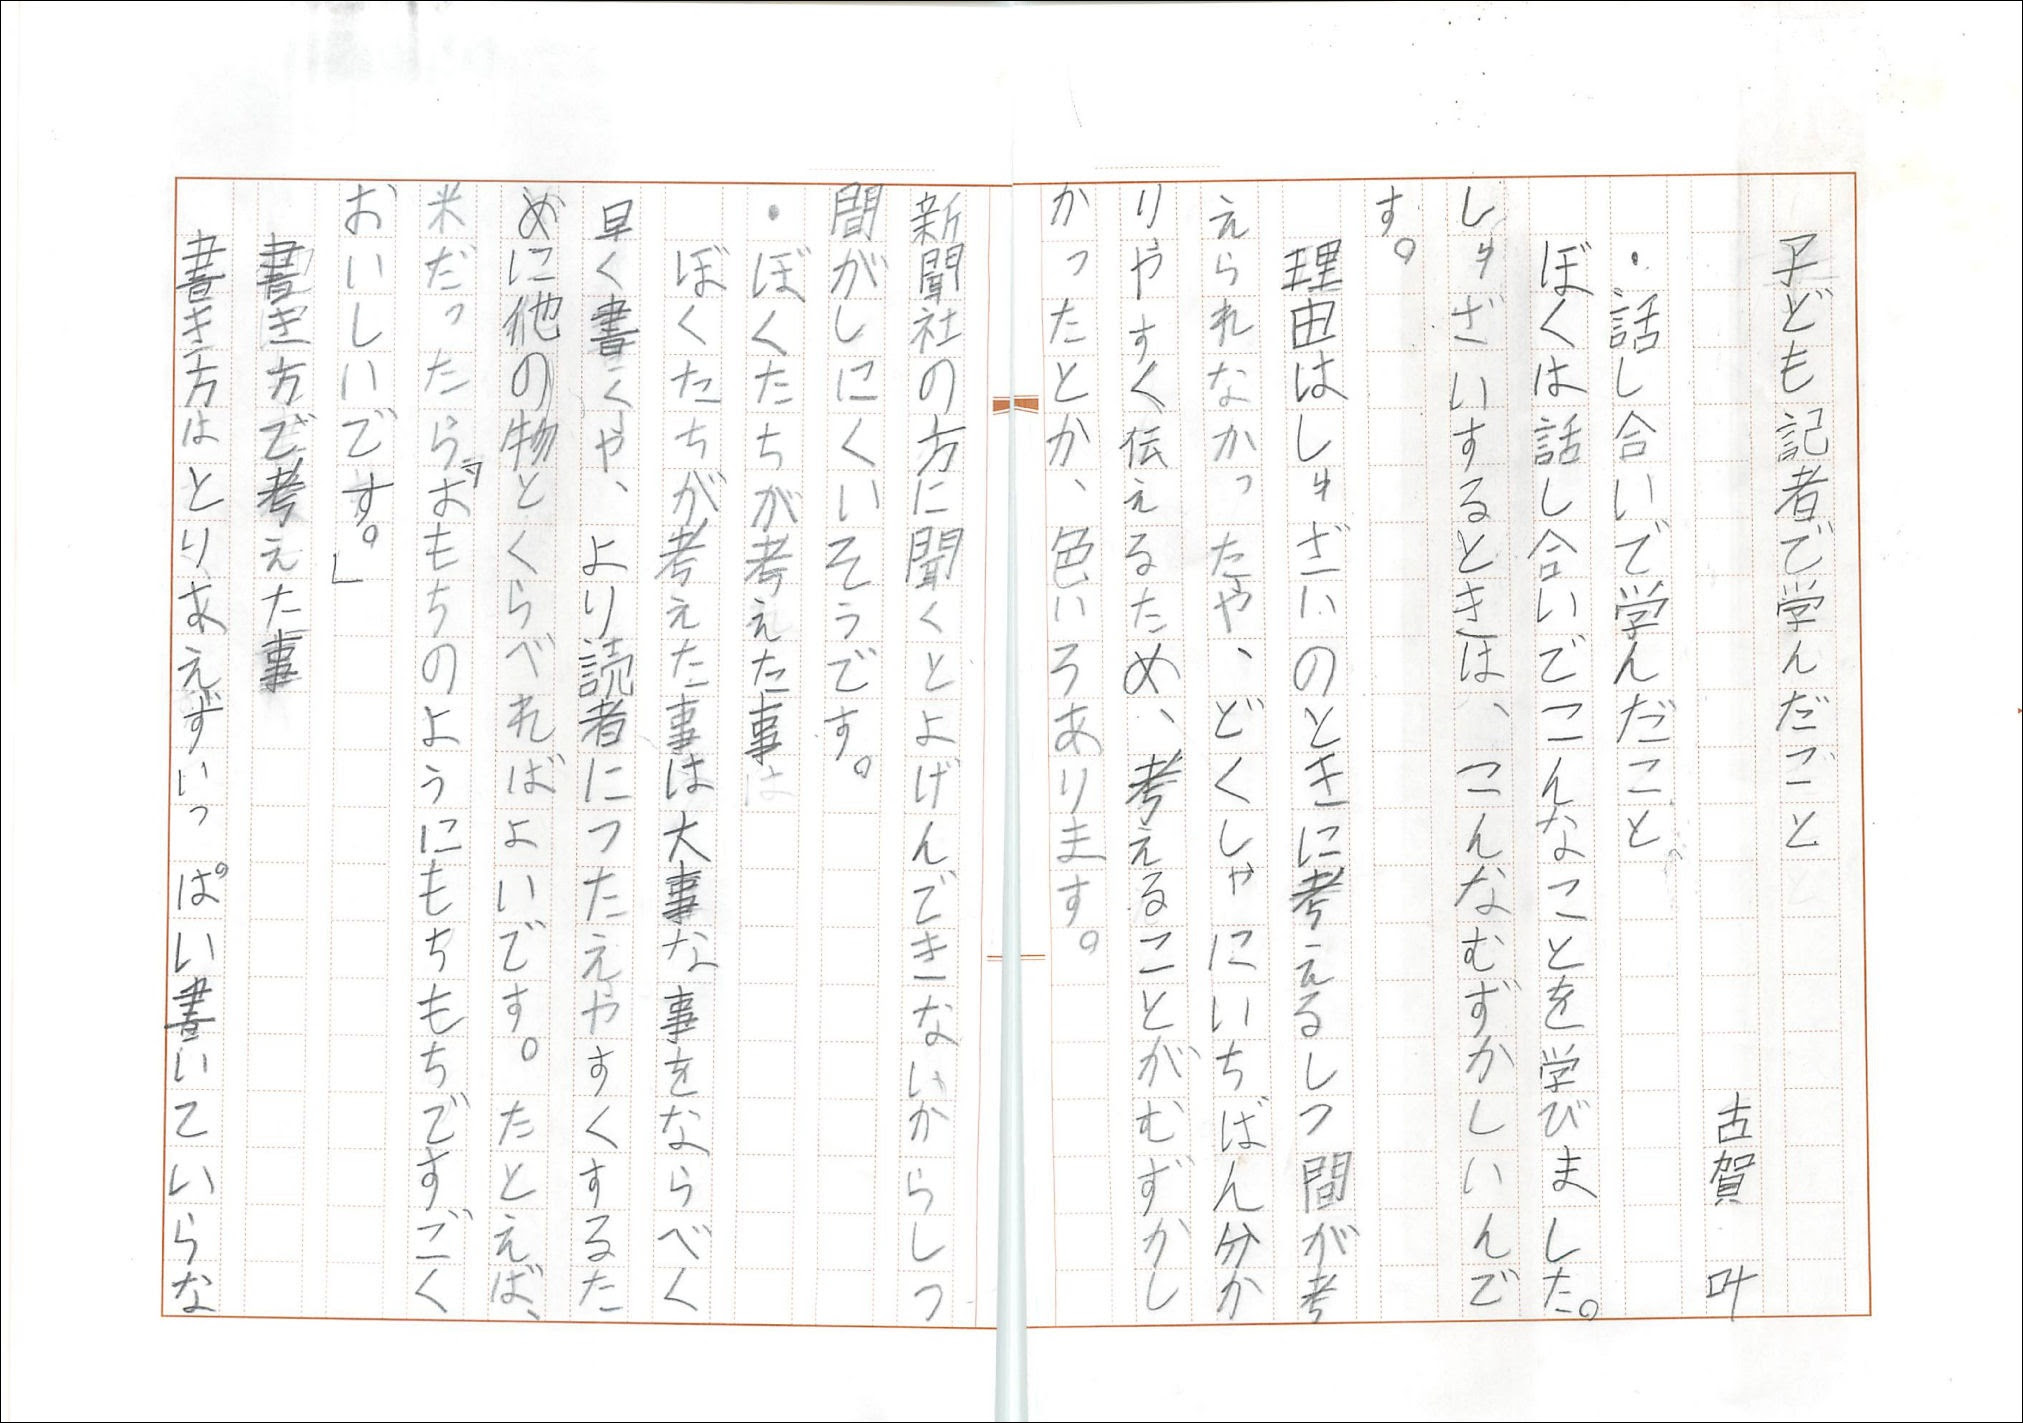 子ども記者で学んだこと
古賀 叶
・話し合いで学んだこと
ぼくは話し合いでこんなことを学びました。
しゅざいするときは、こんなむずかしいんで
す。
理由はしゅざいのときに考えるしつ間が考
えられなかったや、どくしゃにいちばん分か
りやすく伝えるため、考えることがむずかし
かったとか、色いろあります。
新聞社の方に聞くとよげんできないからしつ
間がしにくいそうです。
・ぼくたちが考えた事
ぼくたちが考えた事は大事な事をならべく
早く書くや、より読者につたえやすくするた
めに他の物とくらべればよいです。たとえば、
米だったら「おもちのようにもちもちですごく
おいしいです。」
書き方で考えた事
書き方はとりあえずいっぱい書いていらな